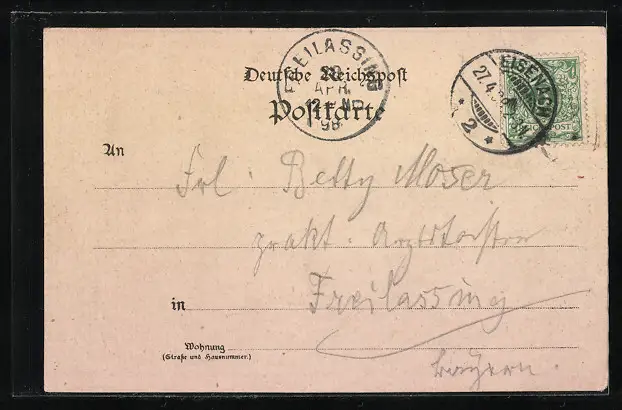 FREILASSING
28
APR.
12
98
EISENACH
27.4.
* 2 *
Deutsche Reichspost
Postkarte
An
Frl: Betty Moser
prakt. Arztstochter
in Freilassing
Bayern.
Wohnung
(Straße und Hausnummer.)